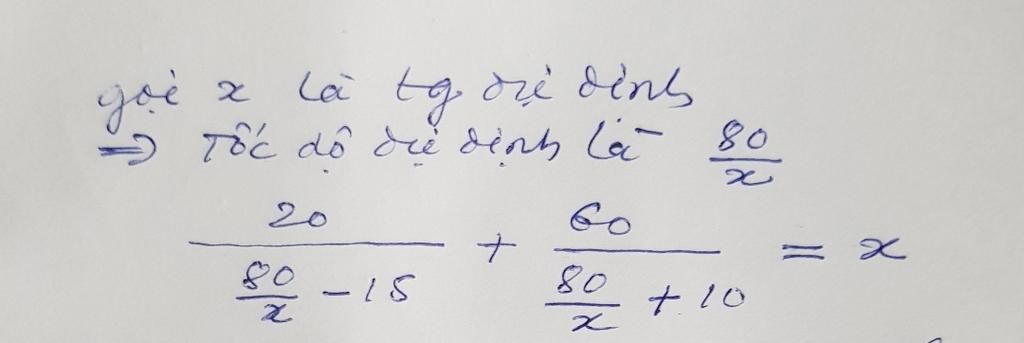 gọi x là tg dự định
⇒ Tốc độ dự định là 80/x
20/(80/x - 15) + 60/(80/x + 10) = x